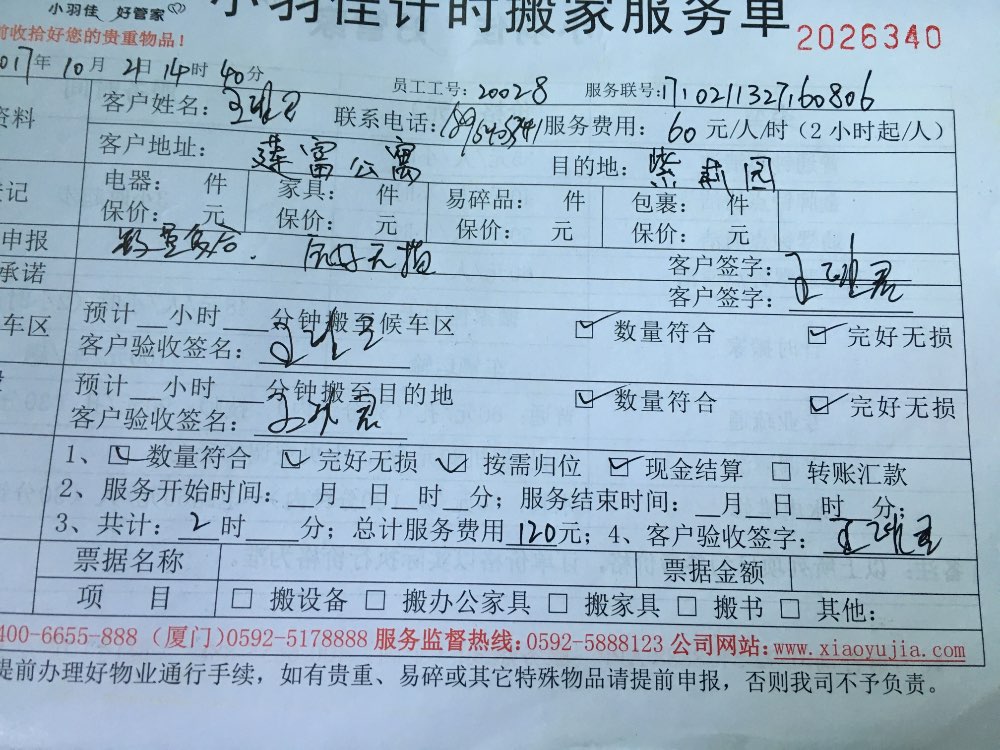 小羽佳 好管家
小羽佳计时搬家服务单
2026340
前收拾好您的贵重物品！
017年10月21日14时40分
员工工号：20028 服务联号：1710211327160806
资料 客户姓名： 联系电话： 服务费用：60元/人/时（2小时起/人）
客户地址：莲富公寓 目的地：紫荆园
登记 电器： 件 家具： 件 易碎品： 件 包裹： 件
保价： 元 保价： 元 保价： 元 保价： 元
申报 数量符合. 完好无损 客户签字：
承诺 客户签字：
车区 预计__小时__分钟搬至候车区 ☑ 数量符合 ☑ 完好无损
客户验收签名：
预计__小时__分钟搬至目的地 ☑ 数量符合 ☑ 完好无损
客户验收签名：
1、☑ 数量符合 ☑ 完好无损 ☑ 按需归位 ☑ 现金结算 □ 转账汇款
2、服务开始时间：__月__日__时__分；服务结束时间：__月__日__时__分；
3、共计：2时__分；总计服务费用120元；4、客户验收签字：
票据名称 票据金额
项 目 □ 搬设备 □ 搬办公家具 □ 搬家具 □ 搬书 □ 其他：
400-6655-888（厦门）0592-5178888 服务监督热线：0592-5888123 公司网站：www.xiaoyujia.com
提前办理好物业通行手续，如有贵重、易碎或其它特殊物品请提前申报，否则我司不予负责。